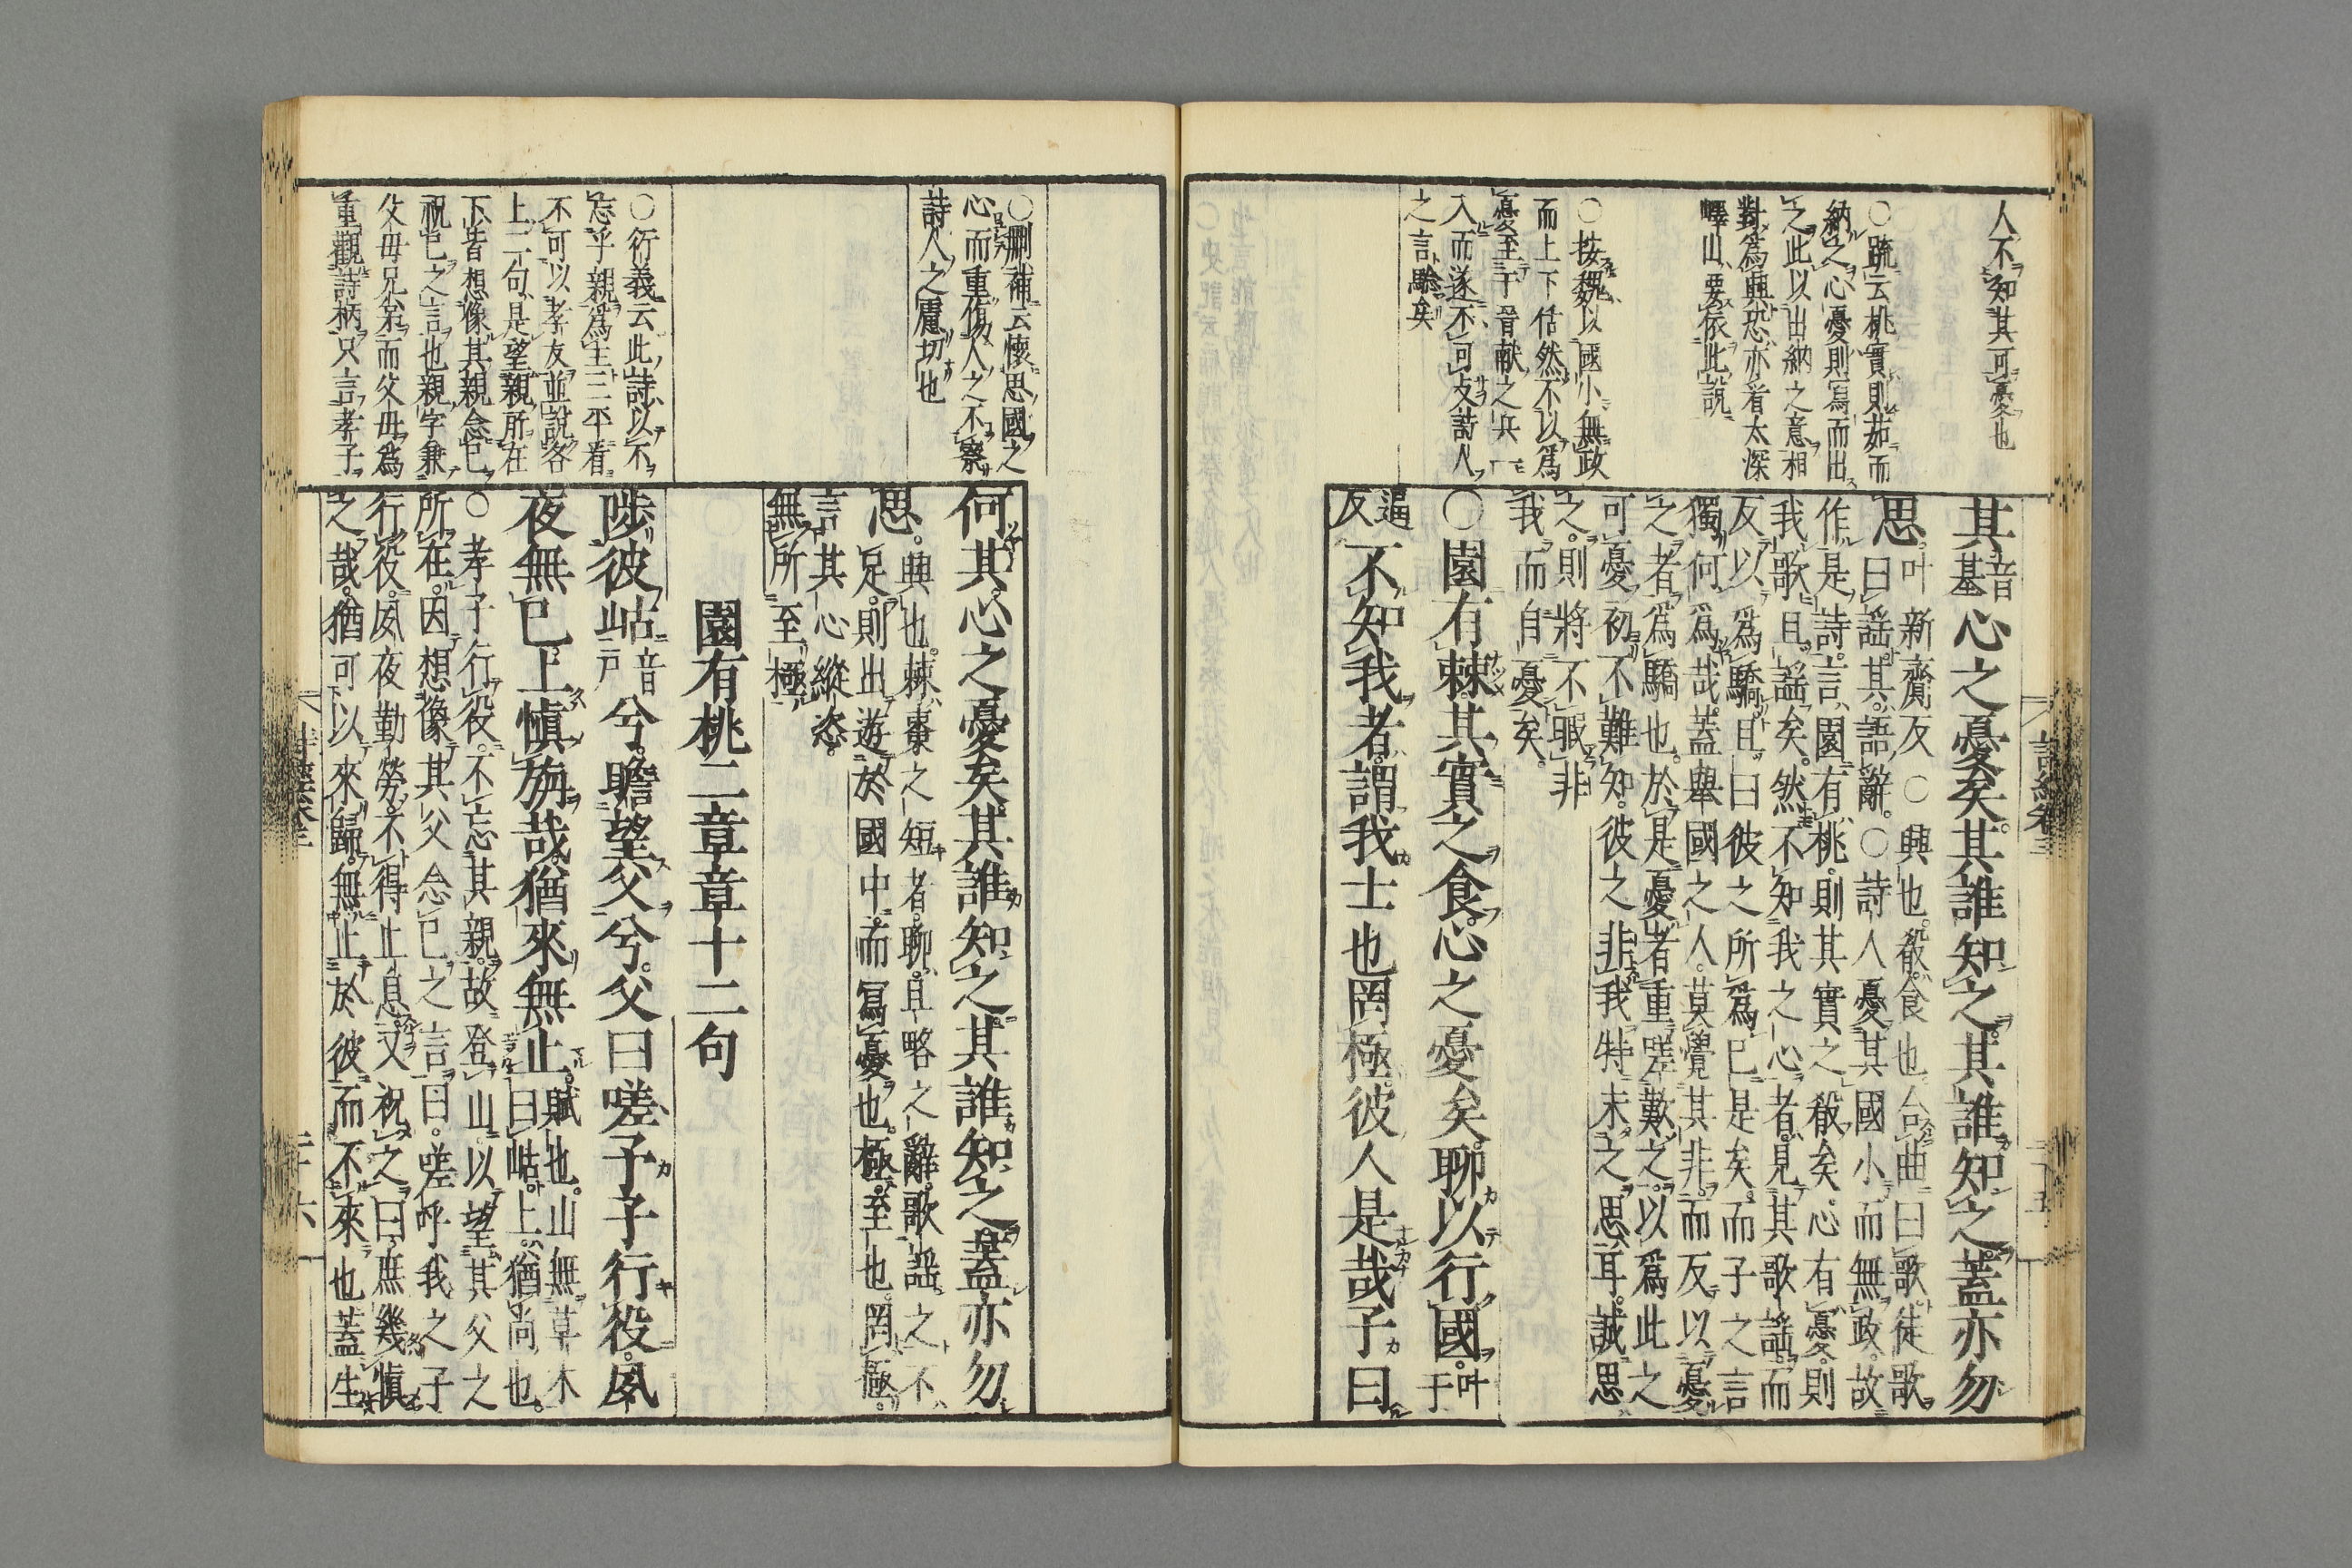 人不知其可憂也
○疏云桃實則茹而
納之心憂則寫而出
之此以出納之意相
對爲興恐亦看太深
嶧山要依此說
○按魏以國小無政
而上下恬然不以爲
憂至于晉献之兵一
入而遂不可支詩人
之言驗矣
其音基心之憂矣其誰知之其誰知之蓋亦勿
思叶新齎反○興也殽食也合曲曰歌徒歌
曰謡其語辭○詩人憂其國小而無政故
作是詩言園有桃則其實之殽矣心有憂則
我歌且謡矣然不知我之心者見其歌謡而
反以爲驕且曰彼之所爲已是矣而子之言
獨何爲哉蓋舉國之人莫覺其非而反以憂
之者爲驕也於是憂者重嗟歎之以爲此之
可憂初不難知彼之非我特未之思耳誠思
之則將不暇非
我而自憂矣
○園有棘其實之食心之憂矣聊以行國叶于
逼反不知我者謂我士也罔極彼人是哉子曰
詩經卷三
○刪補云懷思國之
心而重傷人之不察
詩人之慮切也
○衍義云此詩以不
忘乎親爲主三平看
不可以孝友並說各
上二句是望親所在
下皆想像其親念已
祝已之言也親字兼
父母兄弟而父母爲
重觀詩柄只言孝子
何其心之憂矣其誰知之其誰知之蓋亦勿
思興也棘棗之短者聊且略之辭歌謡之不
足則出遊於國中而寫憂也極至也罔極
言其心縱恣
無所至極
園有桃二章章十二句
陟彼岵音戸兮瞻望父兮父曰嗟予子行役夙
夜無已上愼旃哉猶來無止賦也山無草木
曰岵上猶尚也
○孝子行役不忘其親故登山以望其父之
所在因想像其父念已之言曰嗟呼我之子
行役夙夜勤勞不得止息又祝之曰庶幾愼
之哉猶可以來歸無止於彼而不來也蓋生